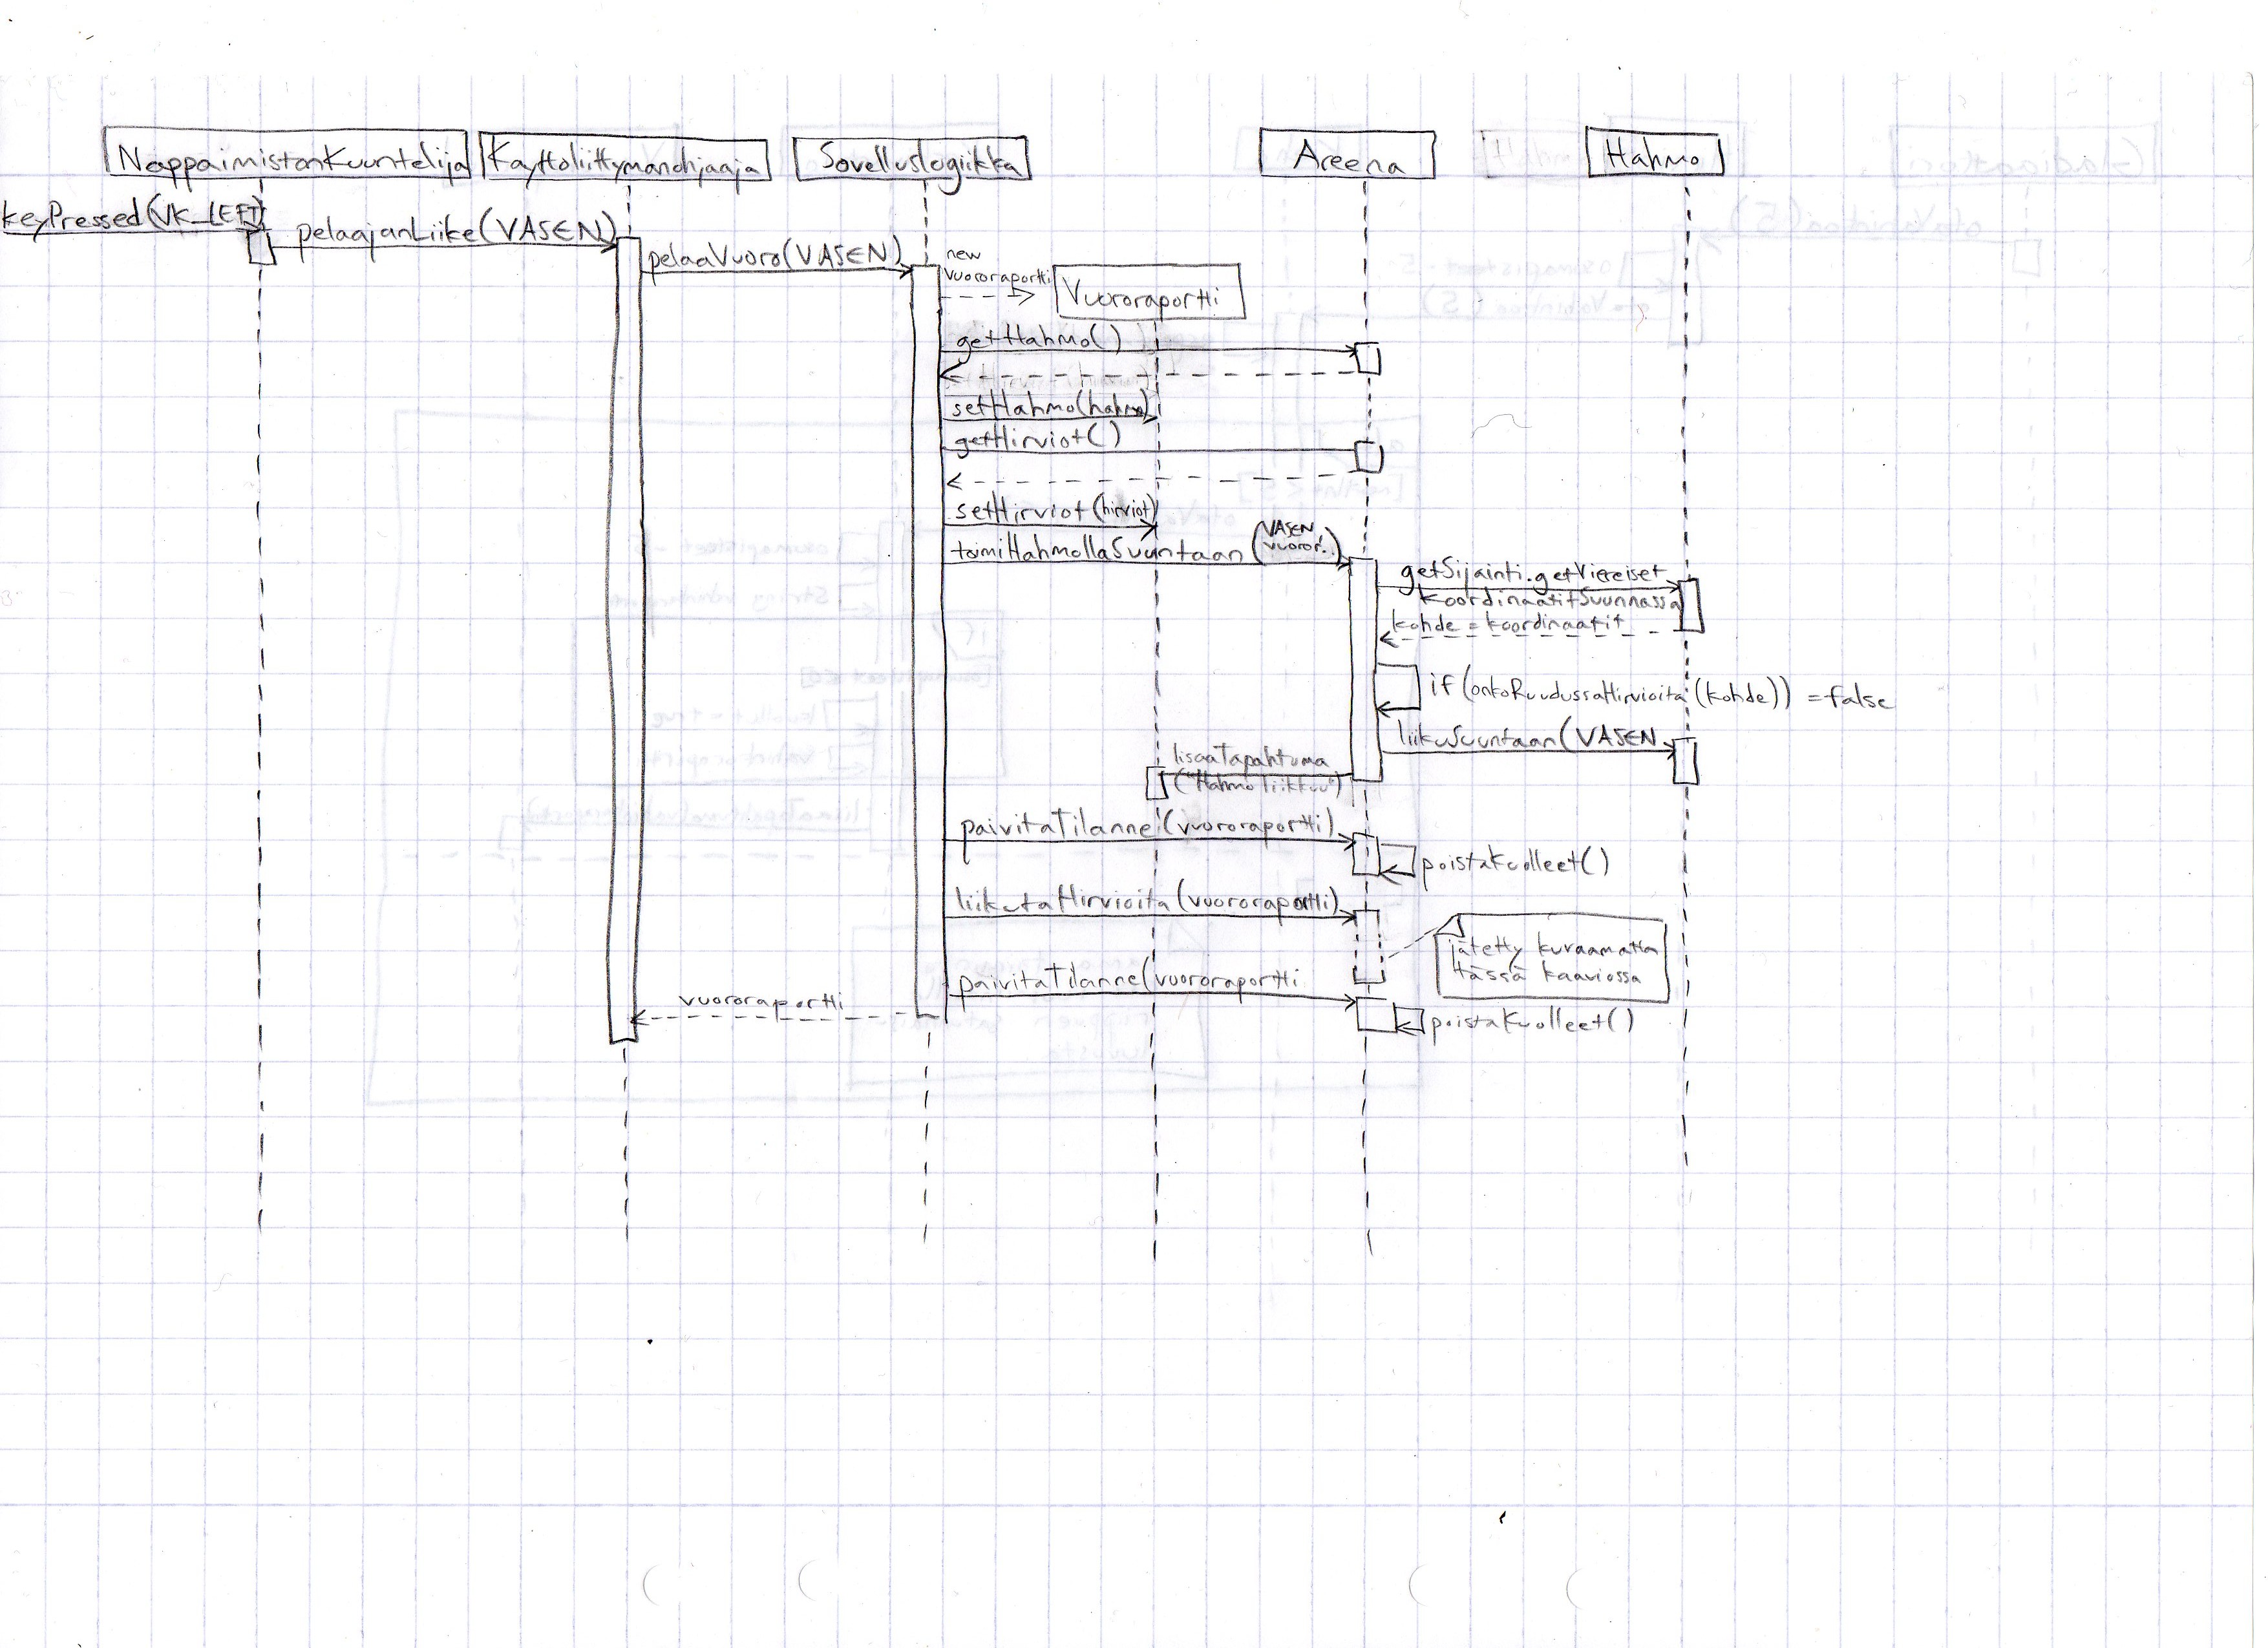 NappaimistonKuuntelija
Kayttoliittymanohjaaja
Sovelluslogiikka
Areena
Hahmo
keyPressed(VK_LEFT)
pelaajanLiike(VASEN)
pelaaVuoro(VASEN)
new
Vuororaportti
Vuororaportti
getHahmo()
setHahmo(hahmo)
getHirviot()
setHirviot(hirviot)
toimiHahmollaSuuntaan(VASEN,
vuoror..)
getSijainti.getViereiset
KoordinaatitSuunnassa
kohde = koordinaatit
if(onkoRuudussaHirvioita(kohde)) = false
liikuSuuntaan(VASEN
lisaaTapahtuma
("Hahmo liikkuu")
paivitaTilanne(vuororaportti)
poistaKuolleet()
liikutaHirvioita(vuororaportti)
jätetty kuvaamatta
tässä kaaviossa
paivitaTilanne(vuororaportti
vuororaportti
poistaKuolleet()